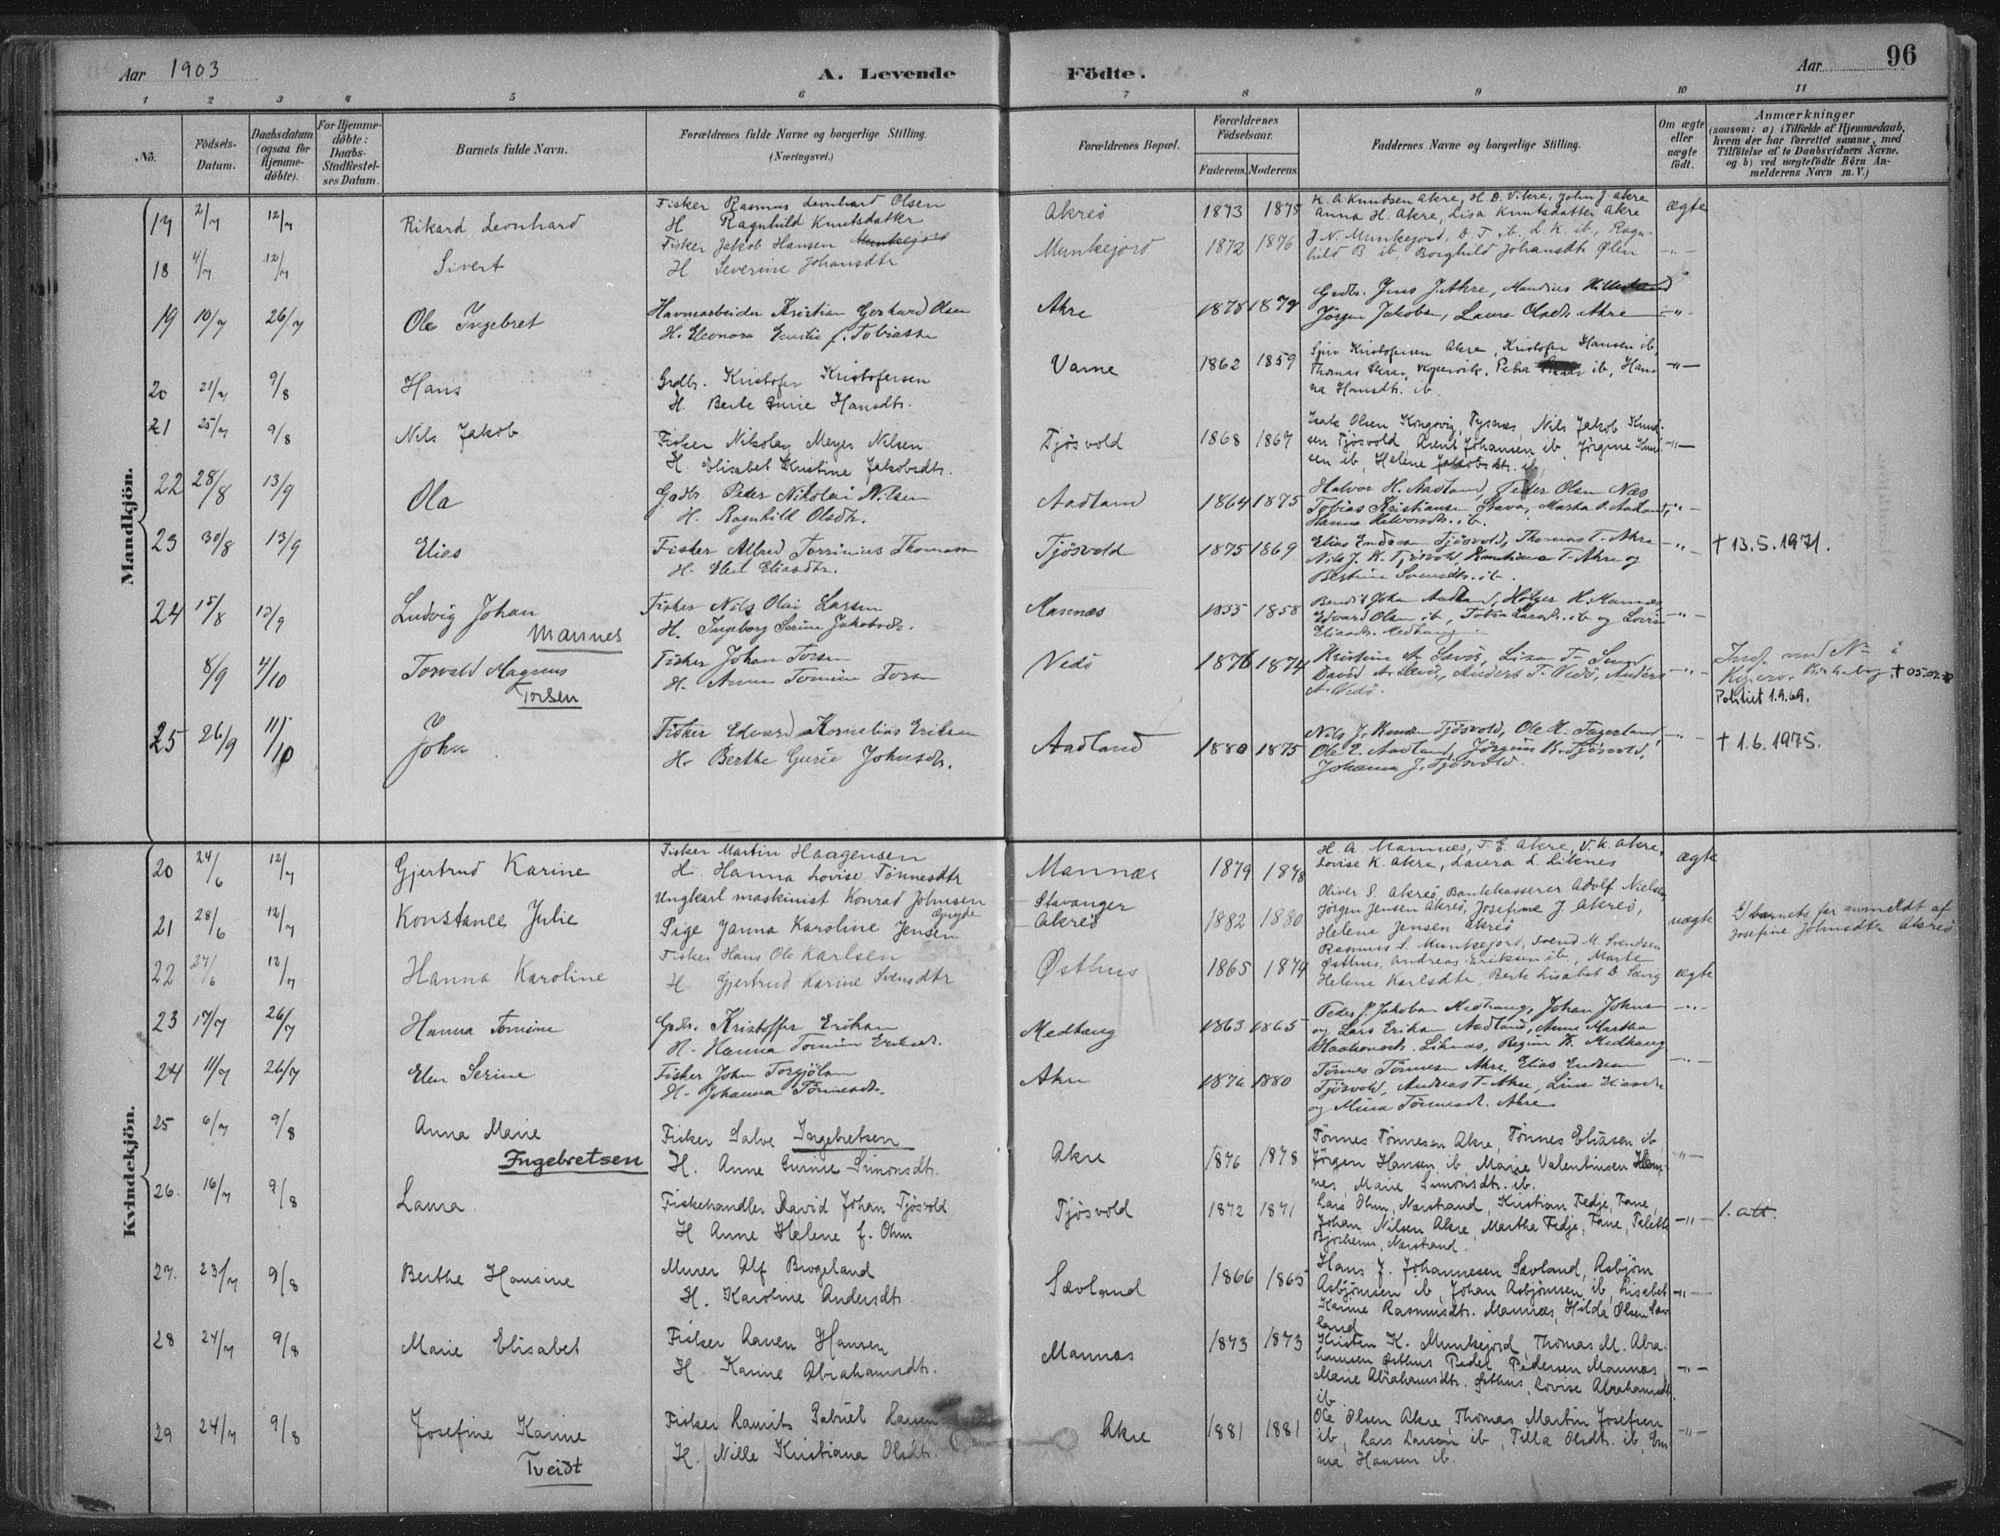 Aar 1903
A. Levende Födte.
Aar
96
1 2 3 4 5 6 7 8 9 10 11
No.
Födsels-Datum.
Daabsdatum (ogsaa for Hjemme-döbte).
For Hjemme-döbte: Daabs-Stadfæstel-ses Datum.
Barnets fulde Navn.
Forældrenes fulde Navne og borgerlige Stilling.
(Næringsvei.)
Forældrenes Bopæl.
Forældrenes Födselsaar.
Faderens. Moderens.
Faddernes Navne og borgerlige Stilling.
Om ægte eller uægte födt.
Anmærkninger
(saasom: a) i Tilfælde af Hjemmedaab,
hvem der har forrettet samme, med
Tilföielse af to Daabsvidners Navne,
og b) ved uægtefödte Börn An-
melderens Navn m. V.)
Mandkjön.
17 2/7 12/7 Rikard Leonhard
Fisker Rasmus Leonhard Olsen
H Ragnhild Knutsdatter
Akreö 1873 1875
K. A Knudsen Akre, H. D. Vikre, John J Akre
Anna H. Akre, Lisa Knutsdatter Akre
ægte
18 4/7 12/7 Sivert
Fisker Jakob Hansen Munkejord
H Severine Johansdtr
Munkejord 1872 1876
J. N. Munkejord, D. T. ib. L. K. ib., Ragn-
hild B. ib, Borghild Johansdtr Ølen
-"-
19 10/7 26/7 Ole Ingebret
Havnearbeider Kristian Gerhard Olsen
H. Eleonora Emilie f. Tobiassen
Akre 1878 1879
Grdbr. Jens J. Akre, Mandius
Jörgen Jakobsen, Laura Olsdtr. Akre
-"-
20 21/7 9/8 Hans
Grdbr. Kristofer Kristofersen
H. Berte Gurie Hansdtr.
Varne 1862 1859
Kristofersen Akre, Kristofer Hansen ib,
Thomas Kopervik, Petra ib, Han-
na Hansdtr. ib
-"-
21 25/7 9/8 Nils Jakob
Fisker Nikolay Meyer Nilsen
H. Elisabet Kristine Jakobsdtr.
Tjösvold 1868 1867
Isak Olsen Kongsvig, Tysnes, Nils Jakob Knud-
sen Tjösvold, Johansen ib, Jörgine Knud-
sen ib, Helene Jakobsdtr. ib
-"-
22 28/8 13/9 Ola
Grdbr. Peder Nikolai Nilsen
H. Ragnhild Olsdtr.
Aadland 1864 1875
Halvor H. Aadland, Peder Olsen Næs
Tobias Kristiansen Stava, Marta O. Aadland,
Hanna Halvorsdtr. ib.
-"-
23 30/8 13/9 Elias
Fisker Alfred Torrinius Thomassen
H. Elen Eliasdtr.
Tjösvold 1875 1869
Elias Endresen Tjösvold, Thomas T. Akre
Nils J. K. Tjösvold, T. Akre og
Svensdtr. ib.
-"-
† 13.5.1971.
24 15/8 13/9 Ludvig Johan
Mannes
Fisker Nils Olai Larsen
H. Ingeborg Serine Jakobsdtr.
Mannæs 1855 1858
Bendik Johan Aadland, Holger H. Mannæs,
Edvard Olsen ib, Larsdtr. ib og
Eliasdtr. Medhaug
-"-
8/9 4/10 Torvald Magnus
Torsen
Fisker Johan Torsen
H. Anna Tomine Torsen
Vedö 1876 1874
Kristine A. Sævig, Lisa T.
David A. Anders T. Vedö, Anders
A. Vedö.
-"-
Indf. med No i
Kirkebog, † 05.02.78
Politiet 1.9.69.
25 26/9 11/10 John
Fisker Edvard Kornelius Eriksen
H. Berthe Gurie Johnsdtr.
Aadland 1880 1875
Nils J. Knudsen Tjösvold, Ole H. Fagerland,
Ole E. Aadland, Jörgine K. Tjösvold,
Johanna J. Tjösvold.
-"-
† 1.6.1975.
Kvindekjön.
20 24/6 12/7 Gjertrud Karine
Fisker Martin Haagensen
H. Hanna Lovise Tønnesdtr
Mannæs 1879 1878
H. A. Mannæs, T. E. Akre, V. K. Akre,
Lovise K. Akre, Laura L. Liknes
ægte
21 28/6 12/7 Konstance Julie
Ungkarl maskinist Konrad Johnsen
Pige Janna Karoline Jensen
Stavanger
Akreö
1882 1880
Oliver S. Akreö, Bankkasserer Adolf Nielsen,
Jørgen Jensen Akreö, Josefine J. Akreö,
Helene Jensen Akreö
uægte
barnets far anmeldt af
Josefine Johnsdtr Akreö
22 27/6 12/7 Hanna Karoline
Fisker Hans Ole Karlsen
H Gjertrud Karine Svensdtr
Østhus 1865 1874
Rasmus S. Munkejord, Svend M. Svendsen
Østhus, Andreas Eriksen ib., Marte
Helene Karlsdtr, Berte Lisabet D. Sævig
ægte
23 17/7 26/7 Hanna Tomine
Grdbr. Kristoffer Eriksen
H. Hanna Tomine Eriksdtr.
Medhaug 1863 1865
Peder P. Jakobsen Medhaug, Johan Johnsen
og Lars Eriksen Aadland, Anne Martha
Haakonsdtr. Liknæs, Regine K. Medhaug
-"-
24 11/7 26/7 Elen Serine
Fisker John Torgjölsen
H. Johanna Tönnesdtr.
Akre 1876 1880
Tönnes Tönnesen Akre, Elias Endresen
Tjösvold, Andreas T. Akre, Lina
og Mina Tönnesdtr. Akre
-"-
25 6/7 9/8 Anna Marie
Ingebretsen
Fisker Salve Ingebretsen
H. Anne Gurine Simonsdtr.
Akre 1876 1878
Tönnes Tönnesen Akre, Tönnes Eliasen ib,
Jörgen Hansen ib, Marie Valentinsen
nes, Marie Simonsdtr. ib.
-"-
26. 16/7 9/8 Laura.
Fiskehandler David Johan Tjösvold
H Anne Helene f. Ohm
Tjösvold 1872 1871
Lars Ohm, Nærstrand, Kristian Fedje, Fane,
Johan Nilsen Akre, Martha Fedje, Fane,
Bjorheim, Nærstrand.
-"-
1. att.
27. 23/7 9/8 Berthe Hansine
Murer Alf Brogeland
H. Karoline Andersdtr.
Sævland 1866 1865
Hans J. Johannesen Sævland, Asbjörn
Asbjörnsen ib, Johan Asbjörnsen ib, Lisabet
Karine Rasmusdtr. Mannæs, Hilda Olsen Sæv-
land
-"-
28 24/7 9/8 Marie Elisabet
Fisker Aanen Hansen
H. Karine Abrahamsdtr.
Mannæs 1873 1873
Kristen K. Munkejord, Thomas M. Abra-
hamsen Østhus, Peder Pedersen Mannæs
Marie Abrahamsdtr. Østhus, Lovise Abrahamsdtr.
ib
-"-
29 24/7 9/8 Josefine Karine
Tveidt
Fisker Laurits Gabriel Larsen
H. Nille Kristiana Olsdtr.
Akre 1881 1881
Ole Olsen Akre, Thomas Martin Josefsen
ib, Lars Larsen ib, Tilla Olsdtr. ib, Em-
ma Hansen ib.
-"-